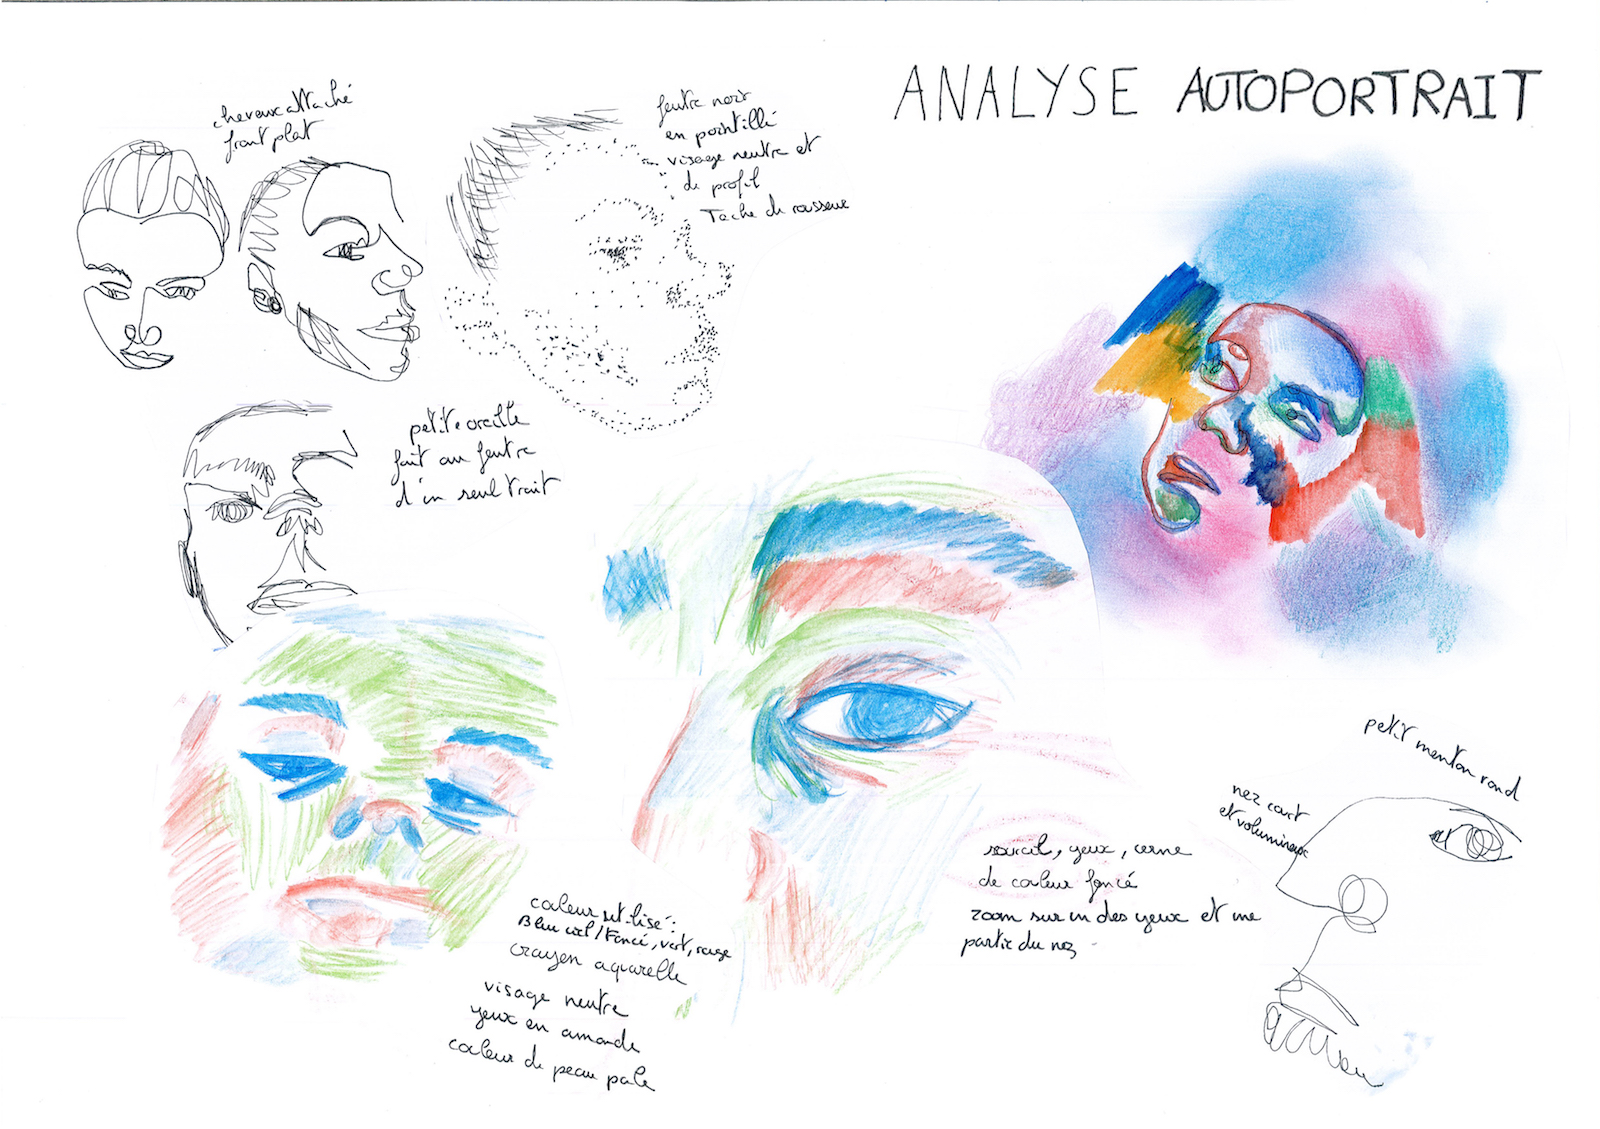 ANALYSE AUTOPORTRAIT
cheveux attaché
front plat
feutre noir
en pointillé
visage neutre et
de profil
Tache de rousseur
petite oreille
fait au feutre
d'un seul trait
couleur utilisé :
Bleu ciel/Foncé, vert, rouge
crayon aquarelle
visage neutre
yeux en amande
couleur de peau pale
sourcil, yeux, cerne
de couleur foncé
zoom sur un des yeux et une
partie du nez
petit menton rond
nez court
et volumineux